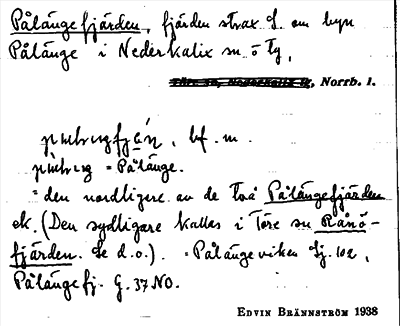 Pålänge fjärden, fjärden strax S. om byn
Pålänge i Nederkalix sn ö Tg,
Norrb. l.
bf. m.
= Pålänge.
= den nordligere av de två Pålängefjärden
ek. (Den sydligare kallas i Töre sn Rånö-
fjärden. Se d.o.). = Pålängeviken Sj. 102,
Pålängefj. G. 37 NO.
EDVIN BRÄNNSTRÖM 1938